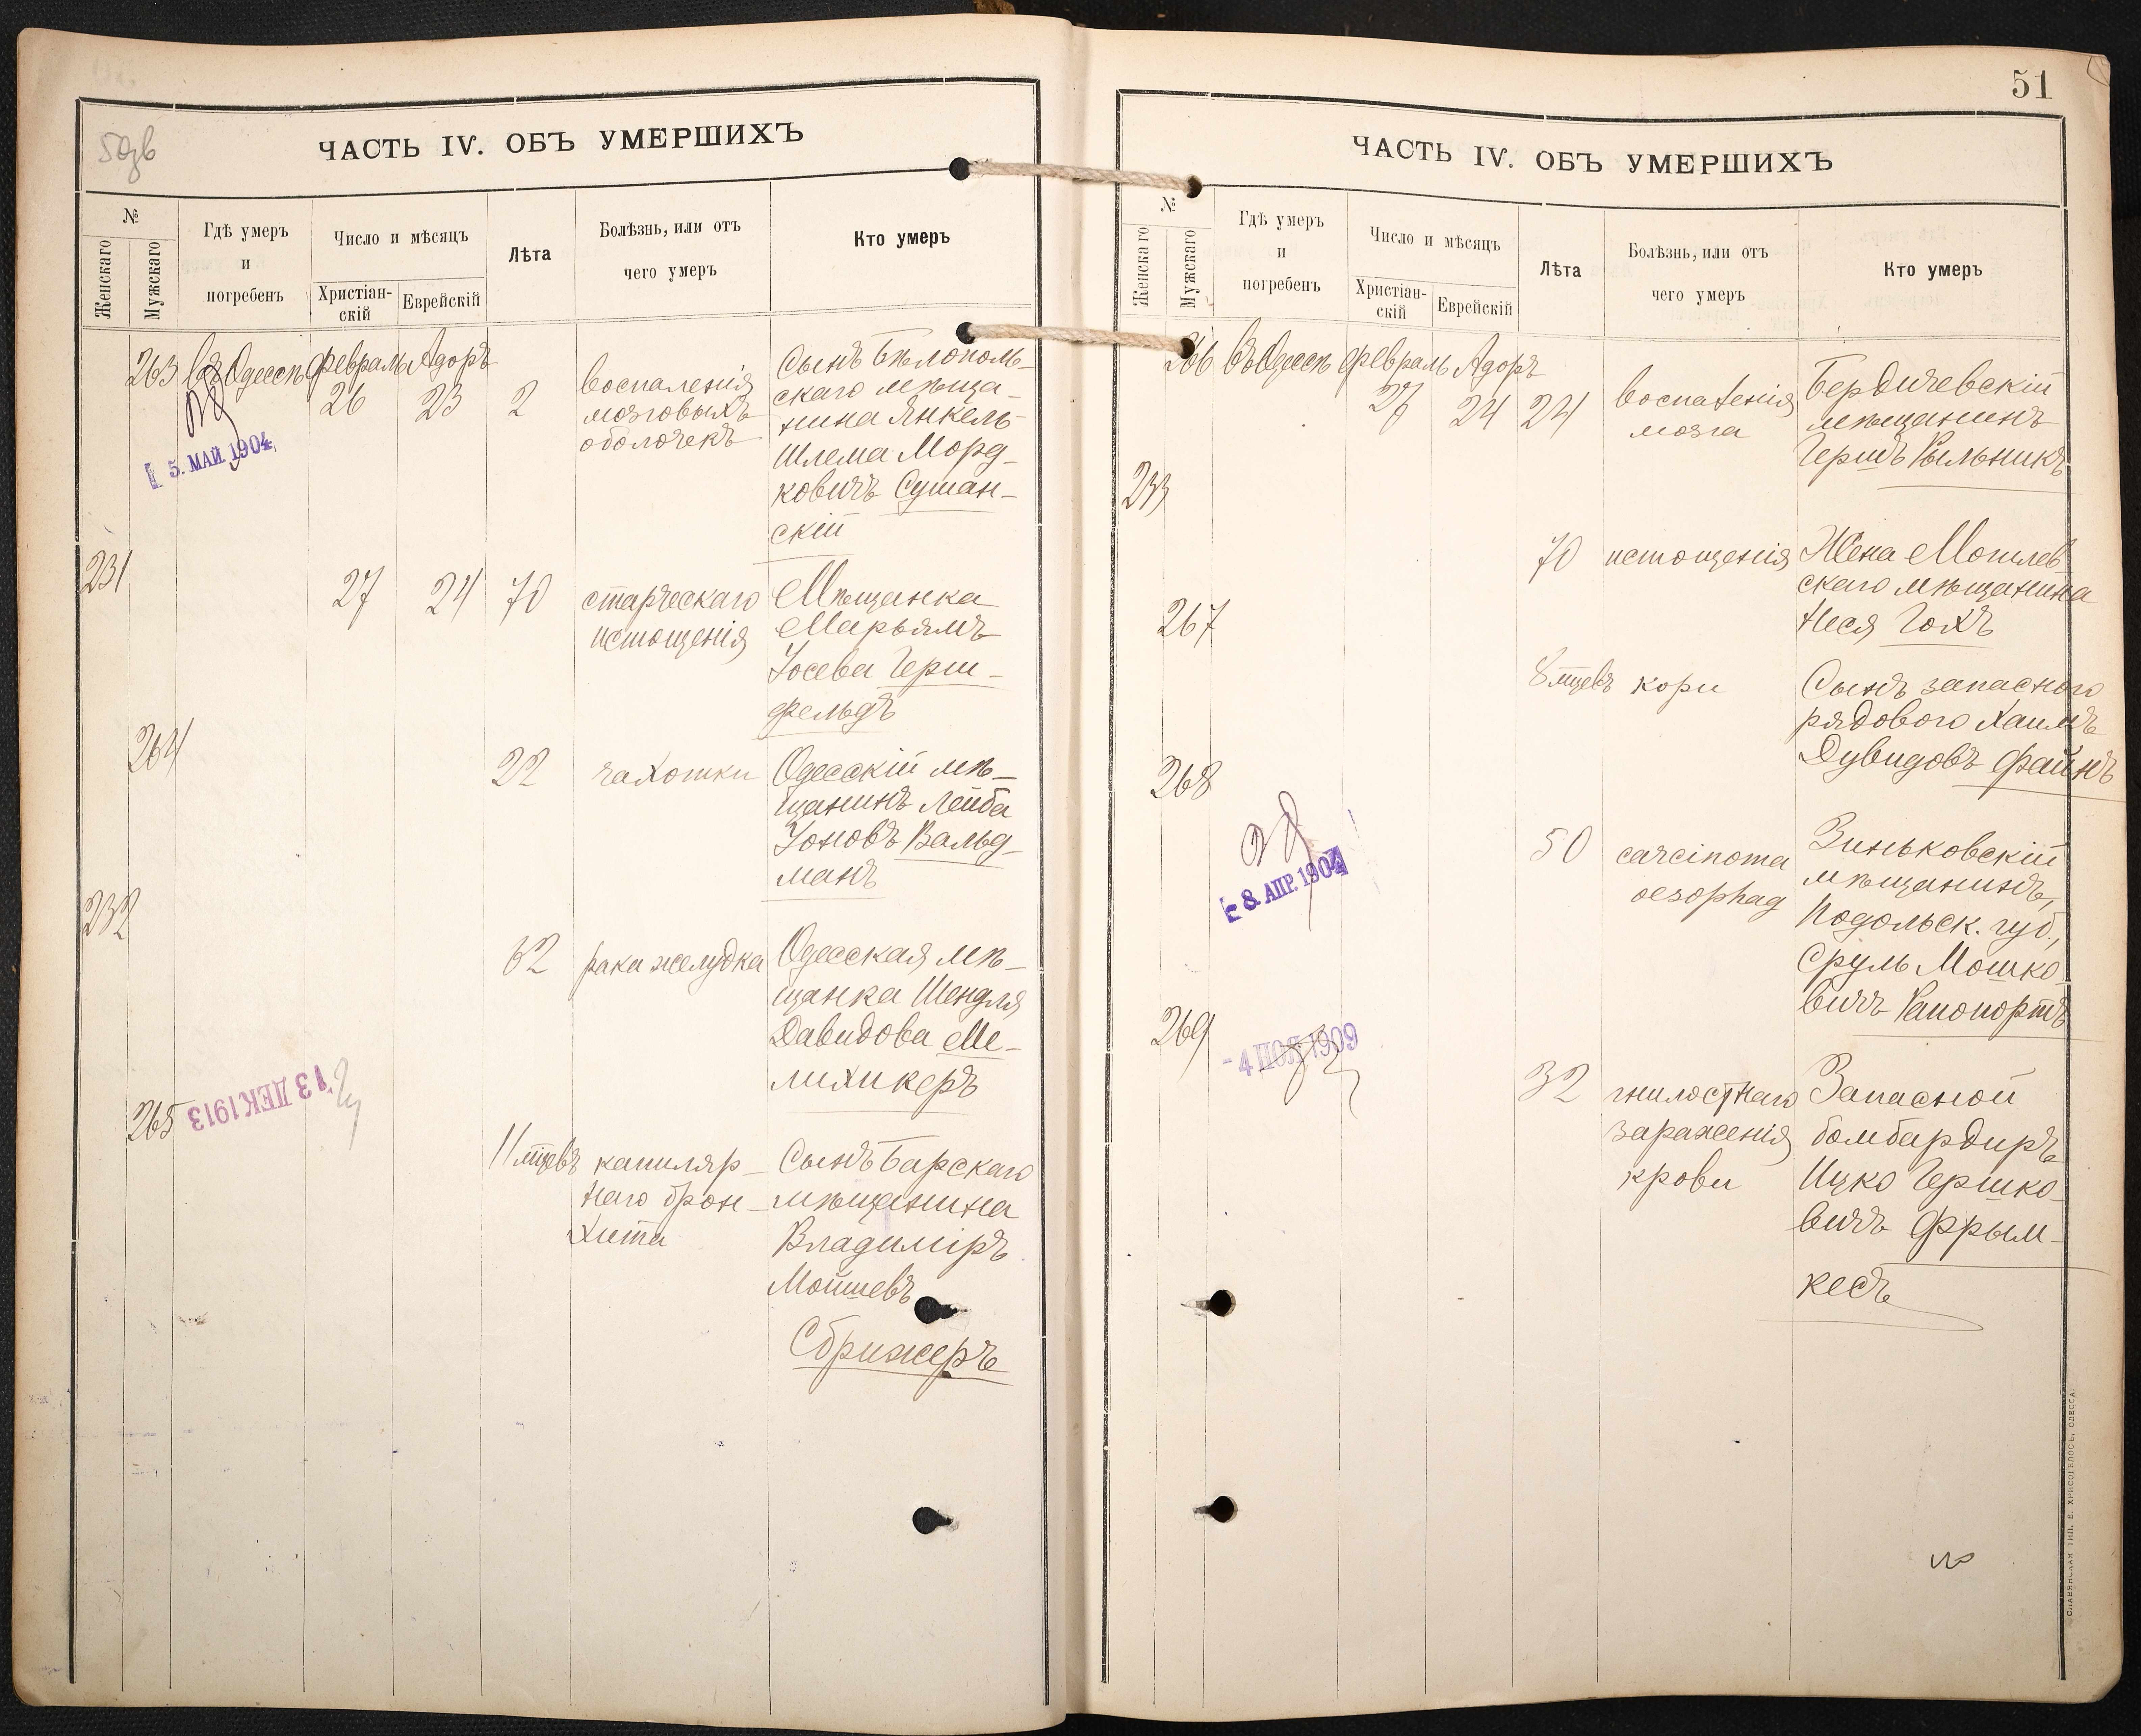 50зв
ЧАСТЬ IV. ОБЪ УМЕРШИХЪ
№
Женскаго
Мужскаго
Гдѣ умеръ
и
погребенъ
Число и мѣсяцъ
Христіан-
скій
Еврейскій
Лѣта
Болѣзнь, или отъ
чего умеръ
Кто умеръ
263 въ Одессѣ Февраль Адоръ
26 23 2
воспаленія
мозговыхъ
оболочекъ
Сынъ Бѣлополь-
скаго мѣща-
нина Янкель-
Шлема Морд-
ковичъ Сушан-
скій
5. МАЙ 1904
231
27 24 70
старческаго
истощенія
Мѣщанка
Марьямъ
Іосева Герш-
фельдъ
264
22
чахотки
Одесскій мѣ-
щанинъ Лейба
Іоновъ Вальд-
манъ
232
62
рака желудка
Одесская мѣ-
щанка Шендля
Давидова Ме-
лихикеръ
13 ДЕК 1913
265
11 мцевъ
капиляр-
наго брон-
хита
Сынъ Барскаго
мѣщанина
Владиміръ
Мойшевъ
Сбрижеръ
51
ЧАСТЬ IV. ОБЪ УМЕРШИХЪ
№
Женскаго
Мужскаго
Гдѣ умеръ
и
погребенъ
Число и мѣсяцъ
Христіан-
скій
Еврейскій
Лѣта
Болѣзнь, или отъ
чего умеръ
Кто умеръ
266 въ Одессѣ Февраль Адоръ
27 24 24
воспаленія
мозга
Бердичевскій
мѣщанинъ
Гершъ Рыльникъ
233
70
истощенія
Жена Могилев
скаго мѣщанина
Неся Гохъ
267
8 мцевъ
кори
Сынъ запасного
рядового Хаимъ
Дувидовъ Файнъ
268
50
carcinoma
oesophag
Зиньковскій
мѣщанинъ,
Подольск. губ.,
Сруль Мошко
вичъ Рапопортъ
- 8. АПР. 1904
269
- 4 НОЯ 1909
32
гнилостнаго
зараженія
крови
Запасной
бомбардиръ
Ицко Гершко
вичъ Фрым-
кесъ
СЛАВЯНСКАЯ ТИП. Е. ХРИСОГЕЛОСЪ, ОДЕССА.